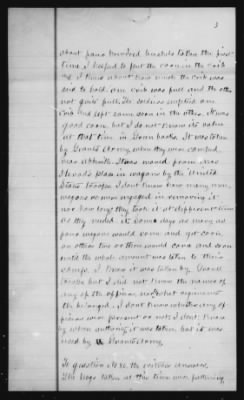 3
about four hundred bushels taken the first
time. I helped to put the corn in the crib
and I know about how much the crib was
said to hold. one crib was full and the other
not quite full. The soldiers emptied one
crib and left some corn in the other. It was
good corn but I do not know its value
at that time in Green backs. It was taken
by Grants Army when they were camped
was moved from Mrs
place in wagons by the United
States troops I don't know how many
wagons or men engaged in removing it
nor how long they took it at different times
as they needed it some days as many as
four wagons would come and get corn
on other two or three would come and soon
until the whole amount was taken to their
camps. I know it was taken by Grants
troops but I did not know the names of
any of the officers nor what regiments
they belonged. I don't know whether any of
ficers were present or not. I don't know
by whom authority it was taken but it was
used by Grants Army
To question No 10 the witness answers.
The hogs taken at this time were fattening